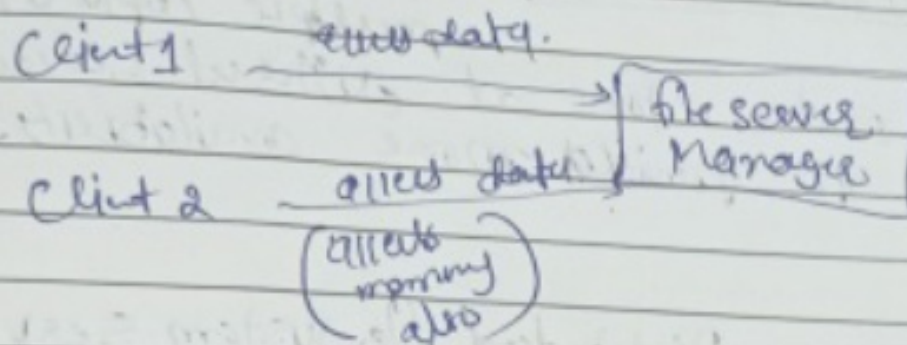 Client 1
access data.
file server
Manager
Client 2
access data
(access
memory
also)